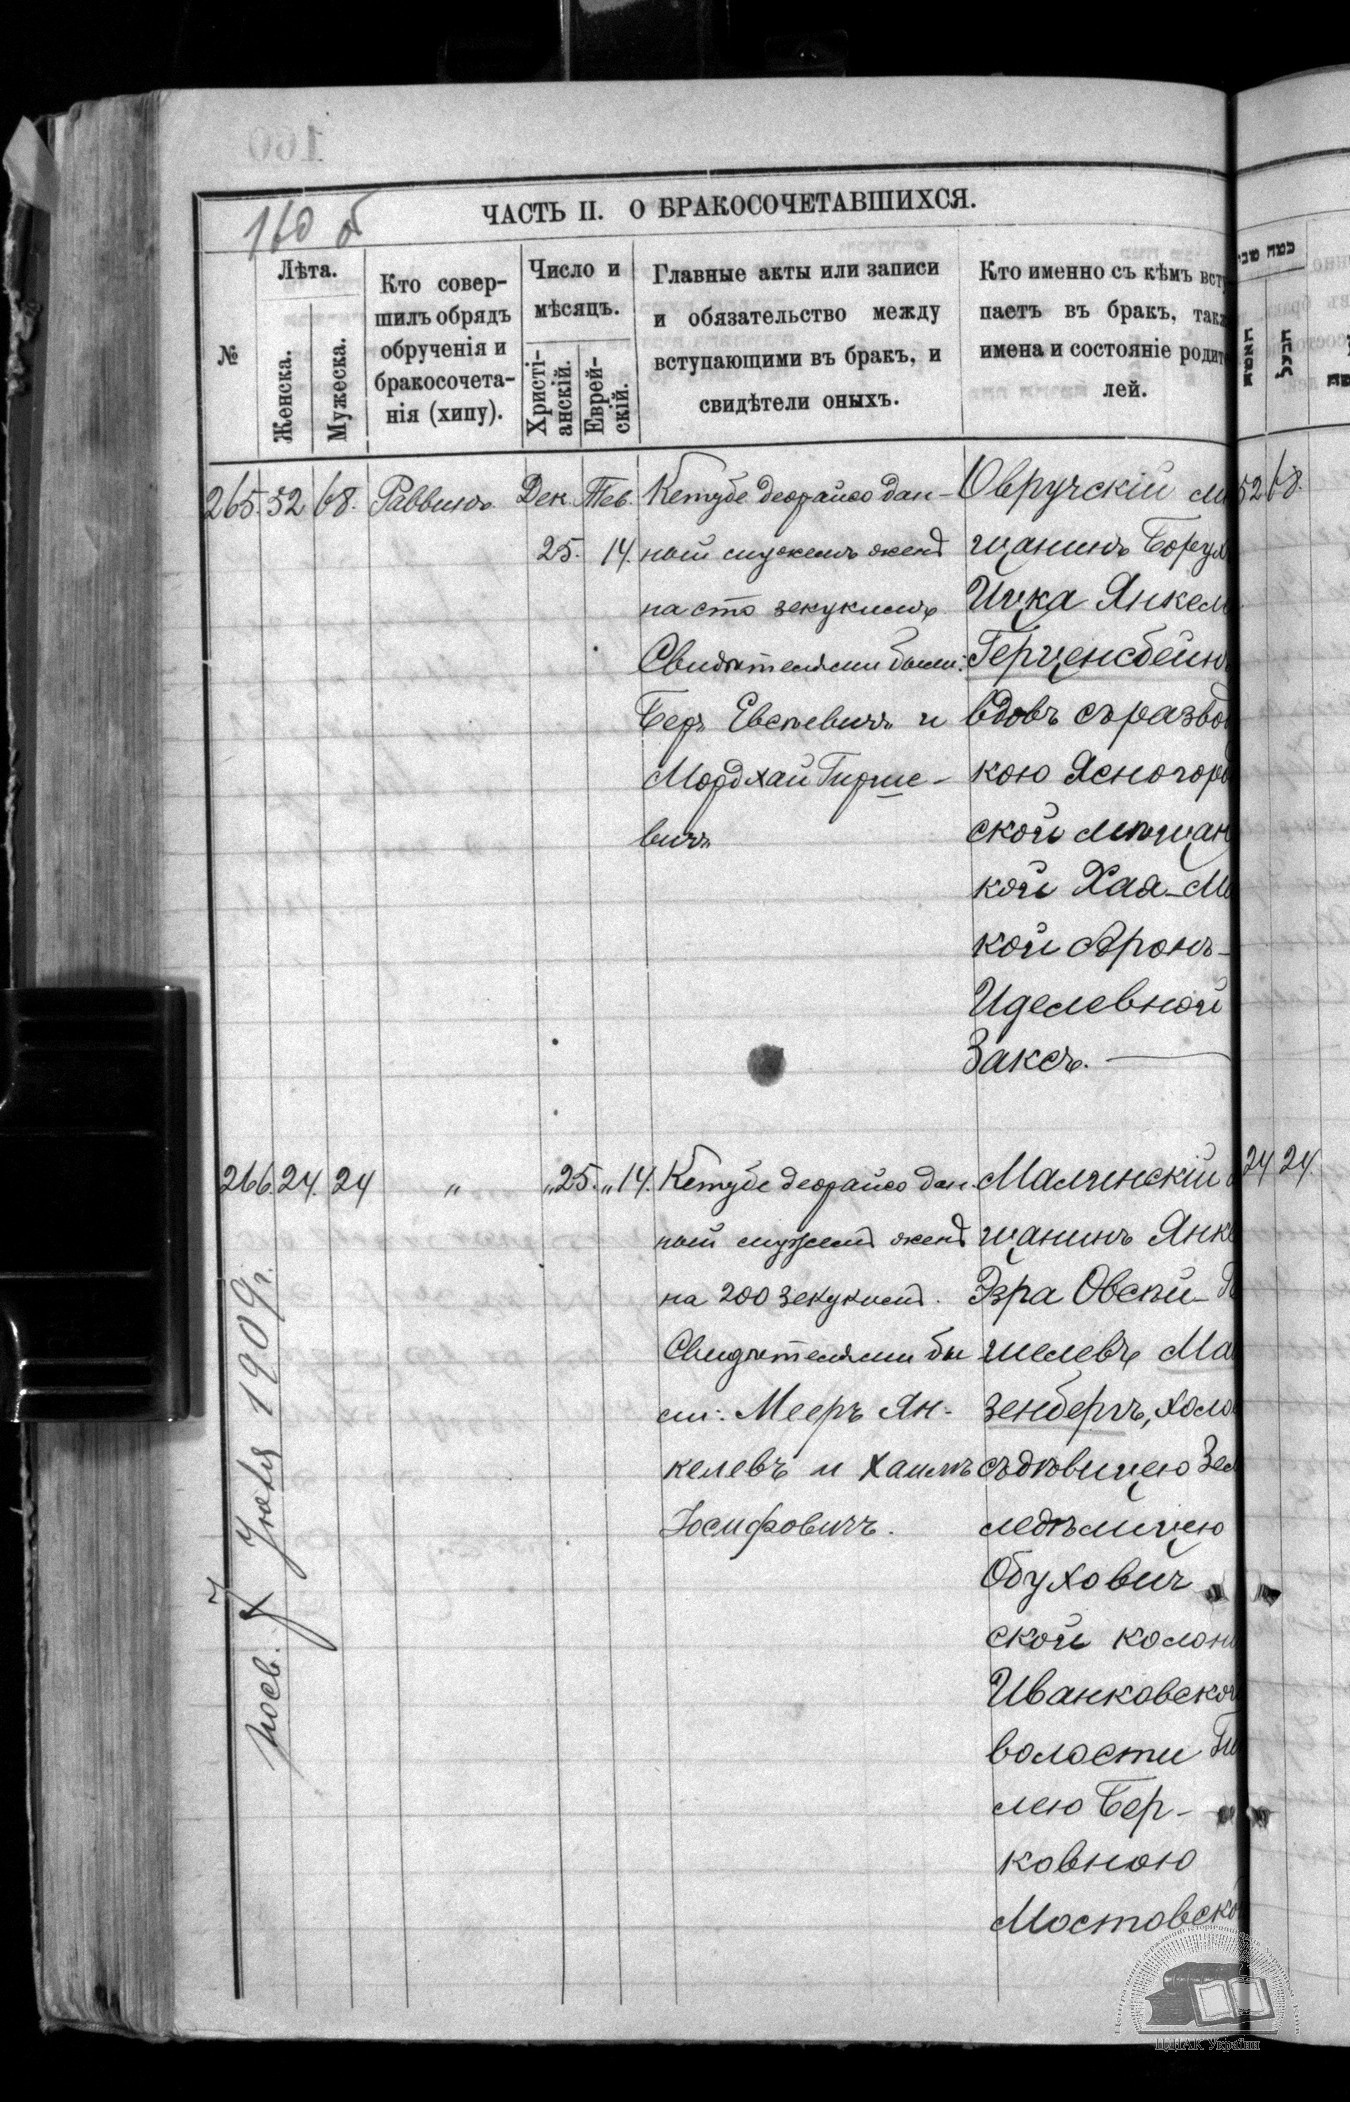 160 об
ЧАСТЬ II. О БРАКОСОЧЕТАВШИХСЯ.
№
Лѣта.
Женска.
Мужеска.
Кто совер-
шилъ обрядъ
обрученія и
бракосочета-
нія (хипу).
Число и
мѣсяцъ.
Христі-
анскій.
Еврей-
скій.
Главные акты или записи
и обязательство между
вступающими въ бракъ, и
свидѣтели оныхъ.
Кто именно съ кѣмъ всту
паетъ въ бракъ, такж
имена и состояніе родит
лей.
האשה
הבעל
265. 52 68. Раввинъ Дек. Тев.
25. 14.
Кетубе деорайсо дан-
ной мужемъ женѣ
на сто зекукимъ
Свидѣтелями были:
Беръ Евсѣевичъ и
Мордхай Гирше-
вичъ
Овручскій мѣ
щанинъ Борух
Ицка Янкел
Герценсбейнъ
вдовъ съ разво
кою Ясногоро
ской мѣщан
кой Хая-М
кой Аронъ-
Иделевной
Заксъ.
52 68.
266. 24. 24 „ „25. „14.
Кетубе деорайсо дан-
ной мужемъ женѣ
на 200 зекукимъ.
Свидѣтелями бы
ли: Мееръ Ян-
келевъ и Хаимъ
Іосифовичъ.
Малинскій
щанинъ Янке
Эзра Овсѣй-
шелевъ Ма
зенбергъ, холо
съ дѣвицею Зем
ледѣлицею
Обухович
ской колон
Иванковской
волости Ги
лею Бер-
ковною
Мостовско
24 24.
7 Іюня 1909 г.
ЦДІАК України